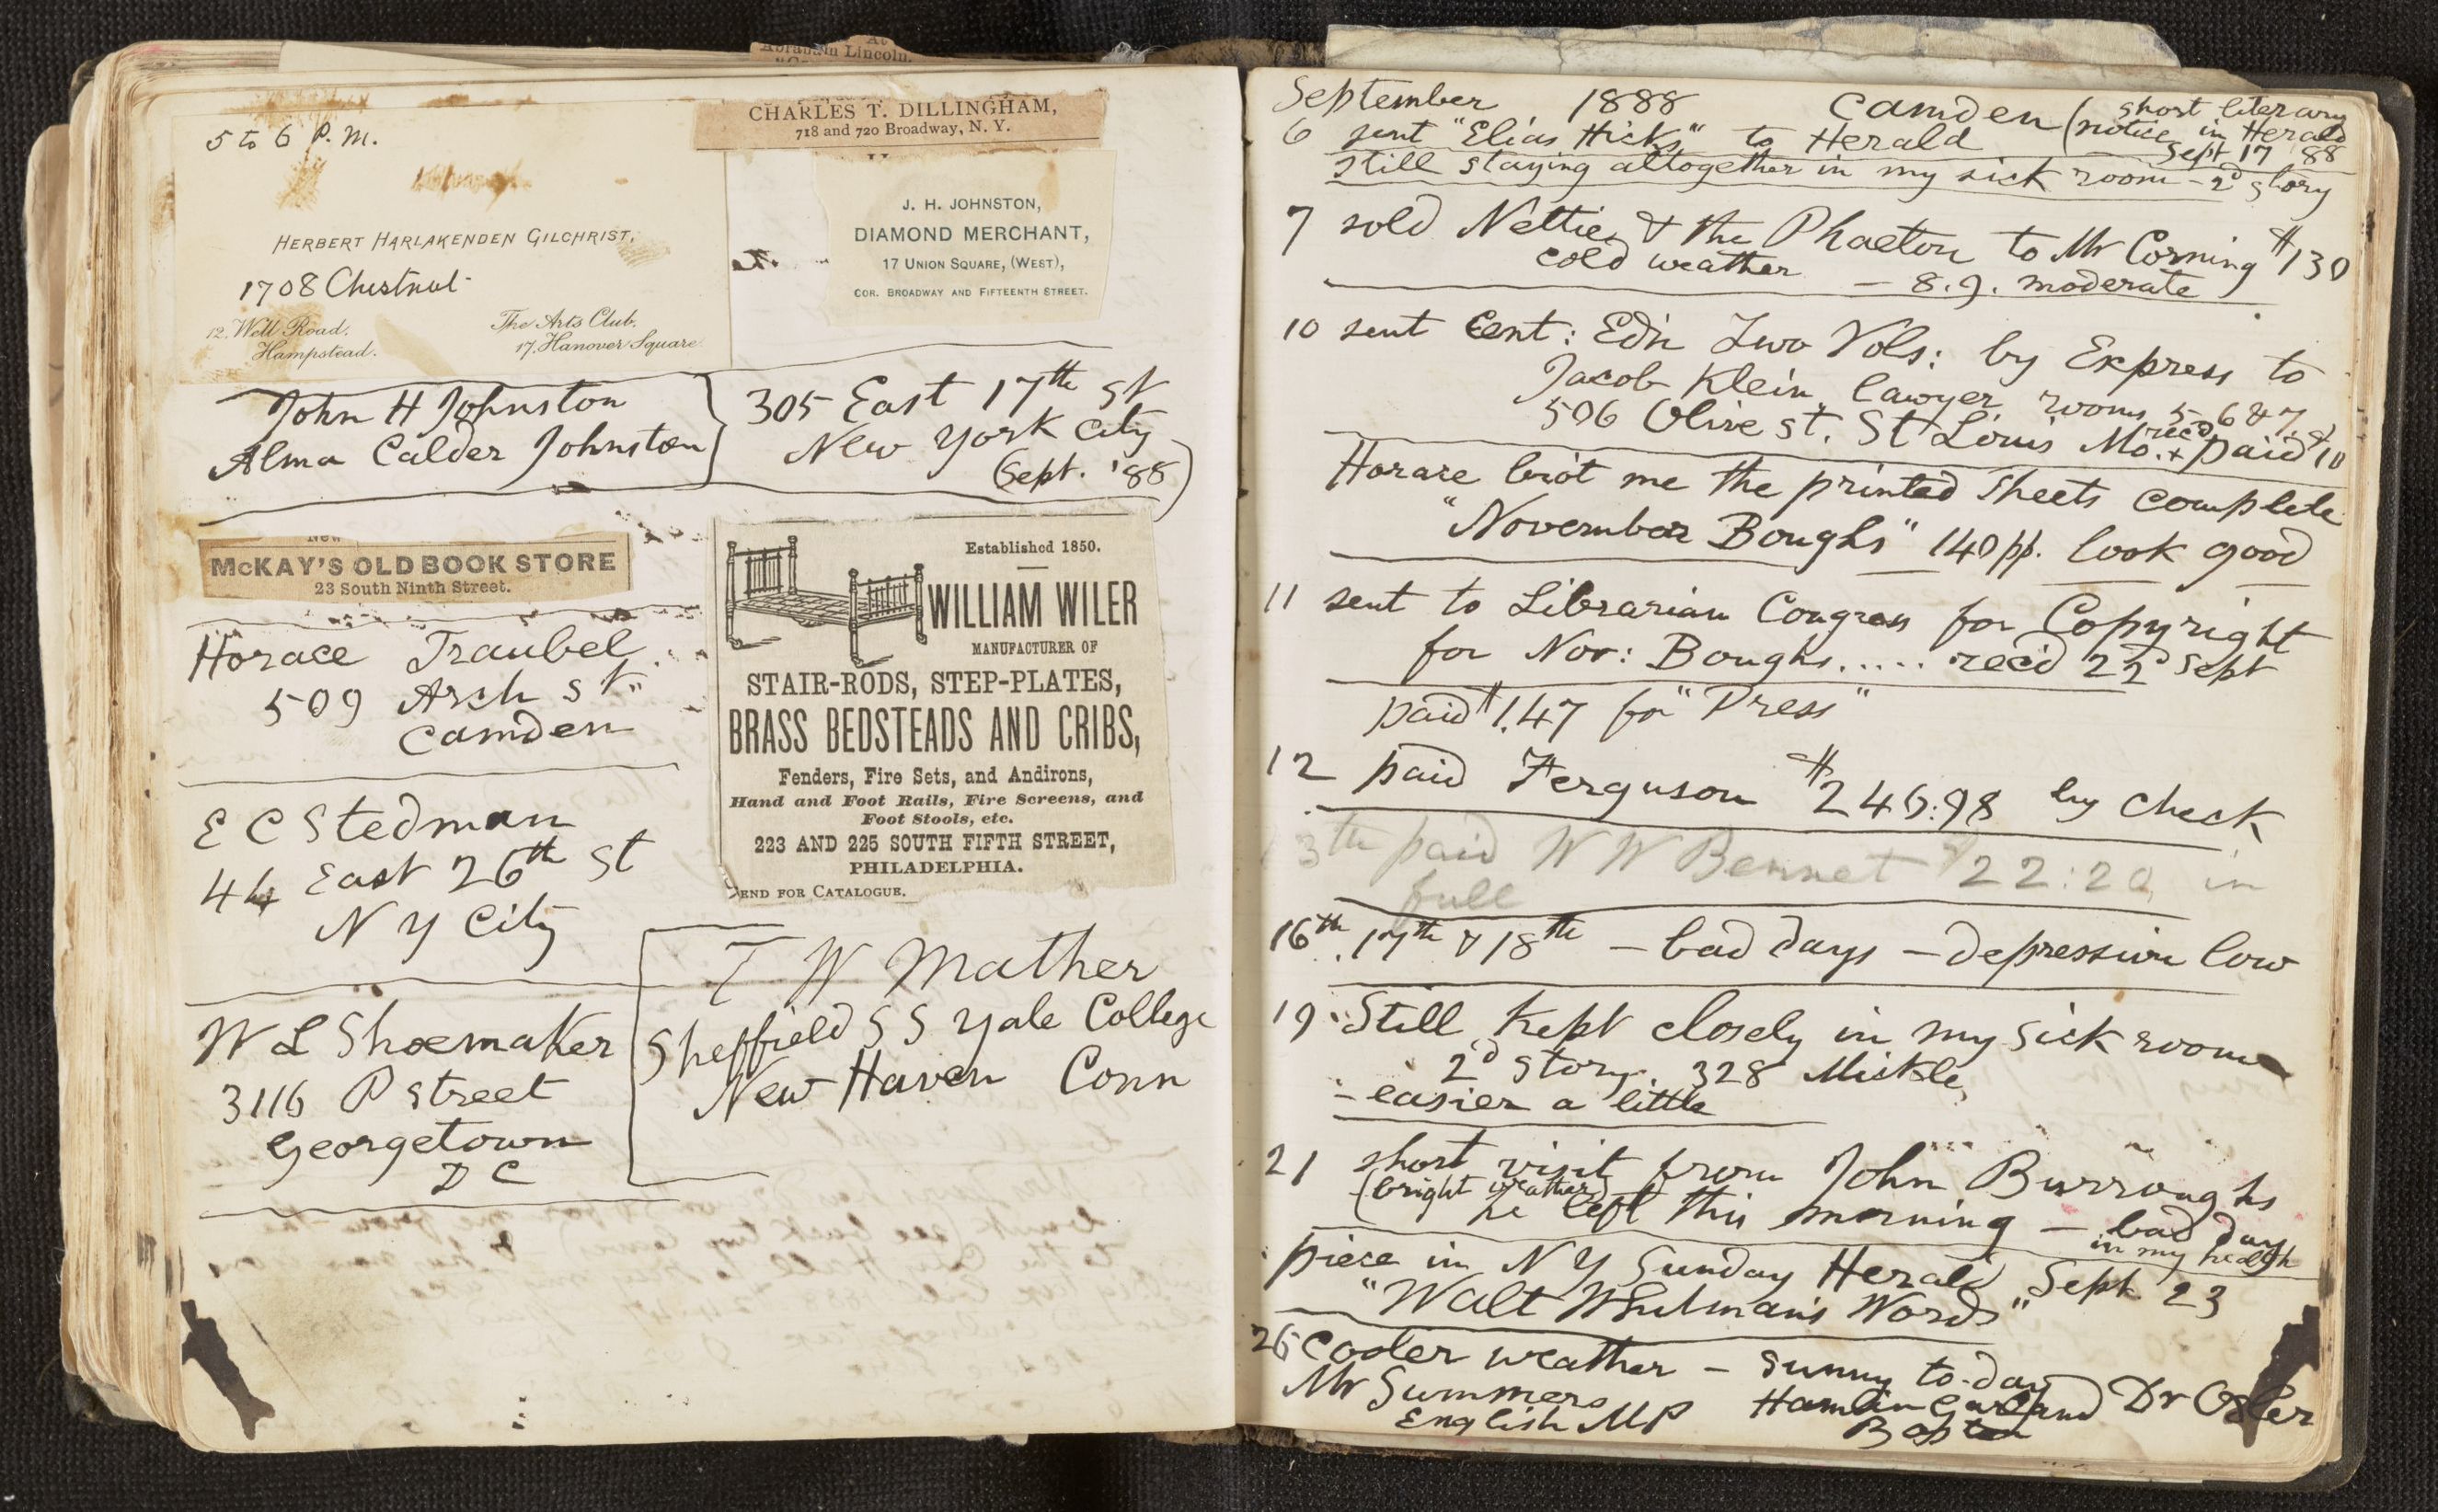 At
Abraham Lincoln.
5 to 6 P. M.
HERBERT HARLAKENDEN GILCHRIST.
1708 Chestnut
12. Well Road.
Hampstead.
The Arts Club.
17. Hanover Square
CHARLES T. DILLINGHAM,
718 and 720 Broadway, N. Y.
J. H. JOHNSTON,
DIAMOND MERCHANT,
17 UNION SQUARE, (WEST),
COR. BROADWAY AND FIFTEENTH STREET.
the
John H Johnston
Alma Calder Johnston
305 East 17th st
New York City
(Sept. '88)
New
McKAY'S OLD BOOK STORE
23 South Ninth Street.
Horace Traubel
509 Arch st"
Camden
E C Stedman
44 East 26th st
N Y City
W L Shoemaker
3116 P street
Georgetown
D C
Established 1850.
WILLIAM WILER
MANUFACTURER OF
STAIR-RODS, STEP-PLATES,
BRASS BEDSTEADS AND CRIBS,
Fenders, Fire Sets, and Andirons,
Hand and Foot Rails, Fire Screens, and
Foot Stools, etc.
223 AND 225 SOUTH FIFTH STREET,
PHILADELPHIA.
SEND FOR CATALOGUE.
T W Mather
Sheffield S S Yale College
New Haven Conn
September 1888 Camden (short literary
notice in Herald
Sept 17 '88
6 sent "Elias Hicks" to Herald
still staying altogether in my sick room – 2d story
7 sold Nettie & the Phaeton to Mr Corning $130
cold weather — 8.9. moderate
10 sent Cent: Ed'n Two Vols: by Express to
Jacob Klein, lawyer, rooms 5 6 & 7,
506 Olive st. St Louis Mo. + rec'd paid $10
Horace bro't me the printed sheets complete
"November Boughs" 140 pp. look good
11 sent to Librarian Congress for Copyright
for Nov: Boughs..... rec'd 22d Sept
paid $1.47 for "Press"
12 paid Ferguson by check
13th paid W W Bennet $22:20 in
full
16th 17th & 18th – bad days – depression low
19 Still kept closely in my sick room
2d story. 328 Mickle,
– easier a little
21 short visit from John Burroughs
(bright weather) he left this morning – bad day
in my health
piece in N Y Sunday Herald Sept 23
"Walt Whitman's Words"
26 cooler weather – sunny to-day
Mr Summers Hamlin Garland Dr Osler
English M P Boston